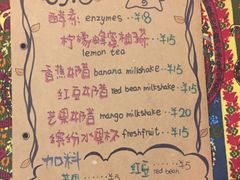 酵素 enzymes ¥18
柠檬蜂蜜柚子
lemon tea ¥15
香蕉奶昔 banana milkshake ¥15
红豆奶昔 red bean milkshake ¥15
芒果奶昔 mango milkshake ¥20
缤纷水果杯 freshfruit ¥15
加料
红豆 ¥5
red bean